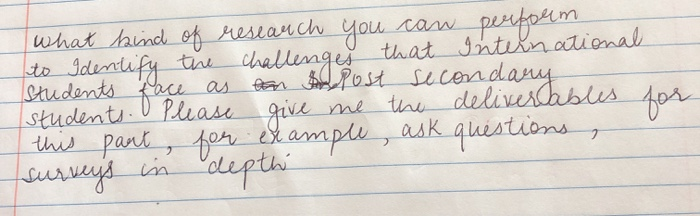 what kind of research you can perform
to Identify the challenges that International
students face as Post secondary
students. Please give me the deliverables for
this part, for example, ask questions,
surveys in depth